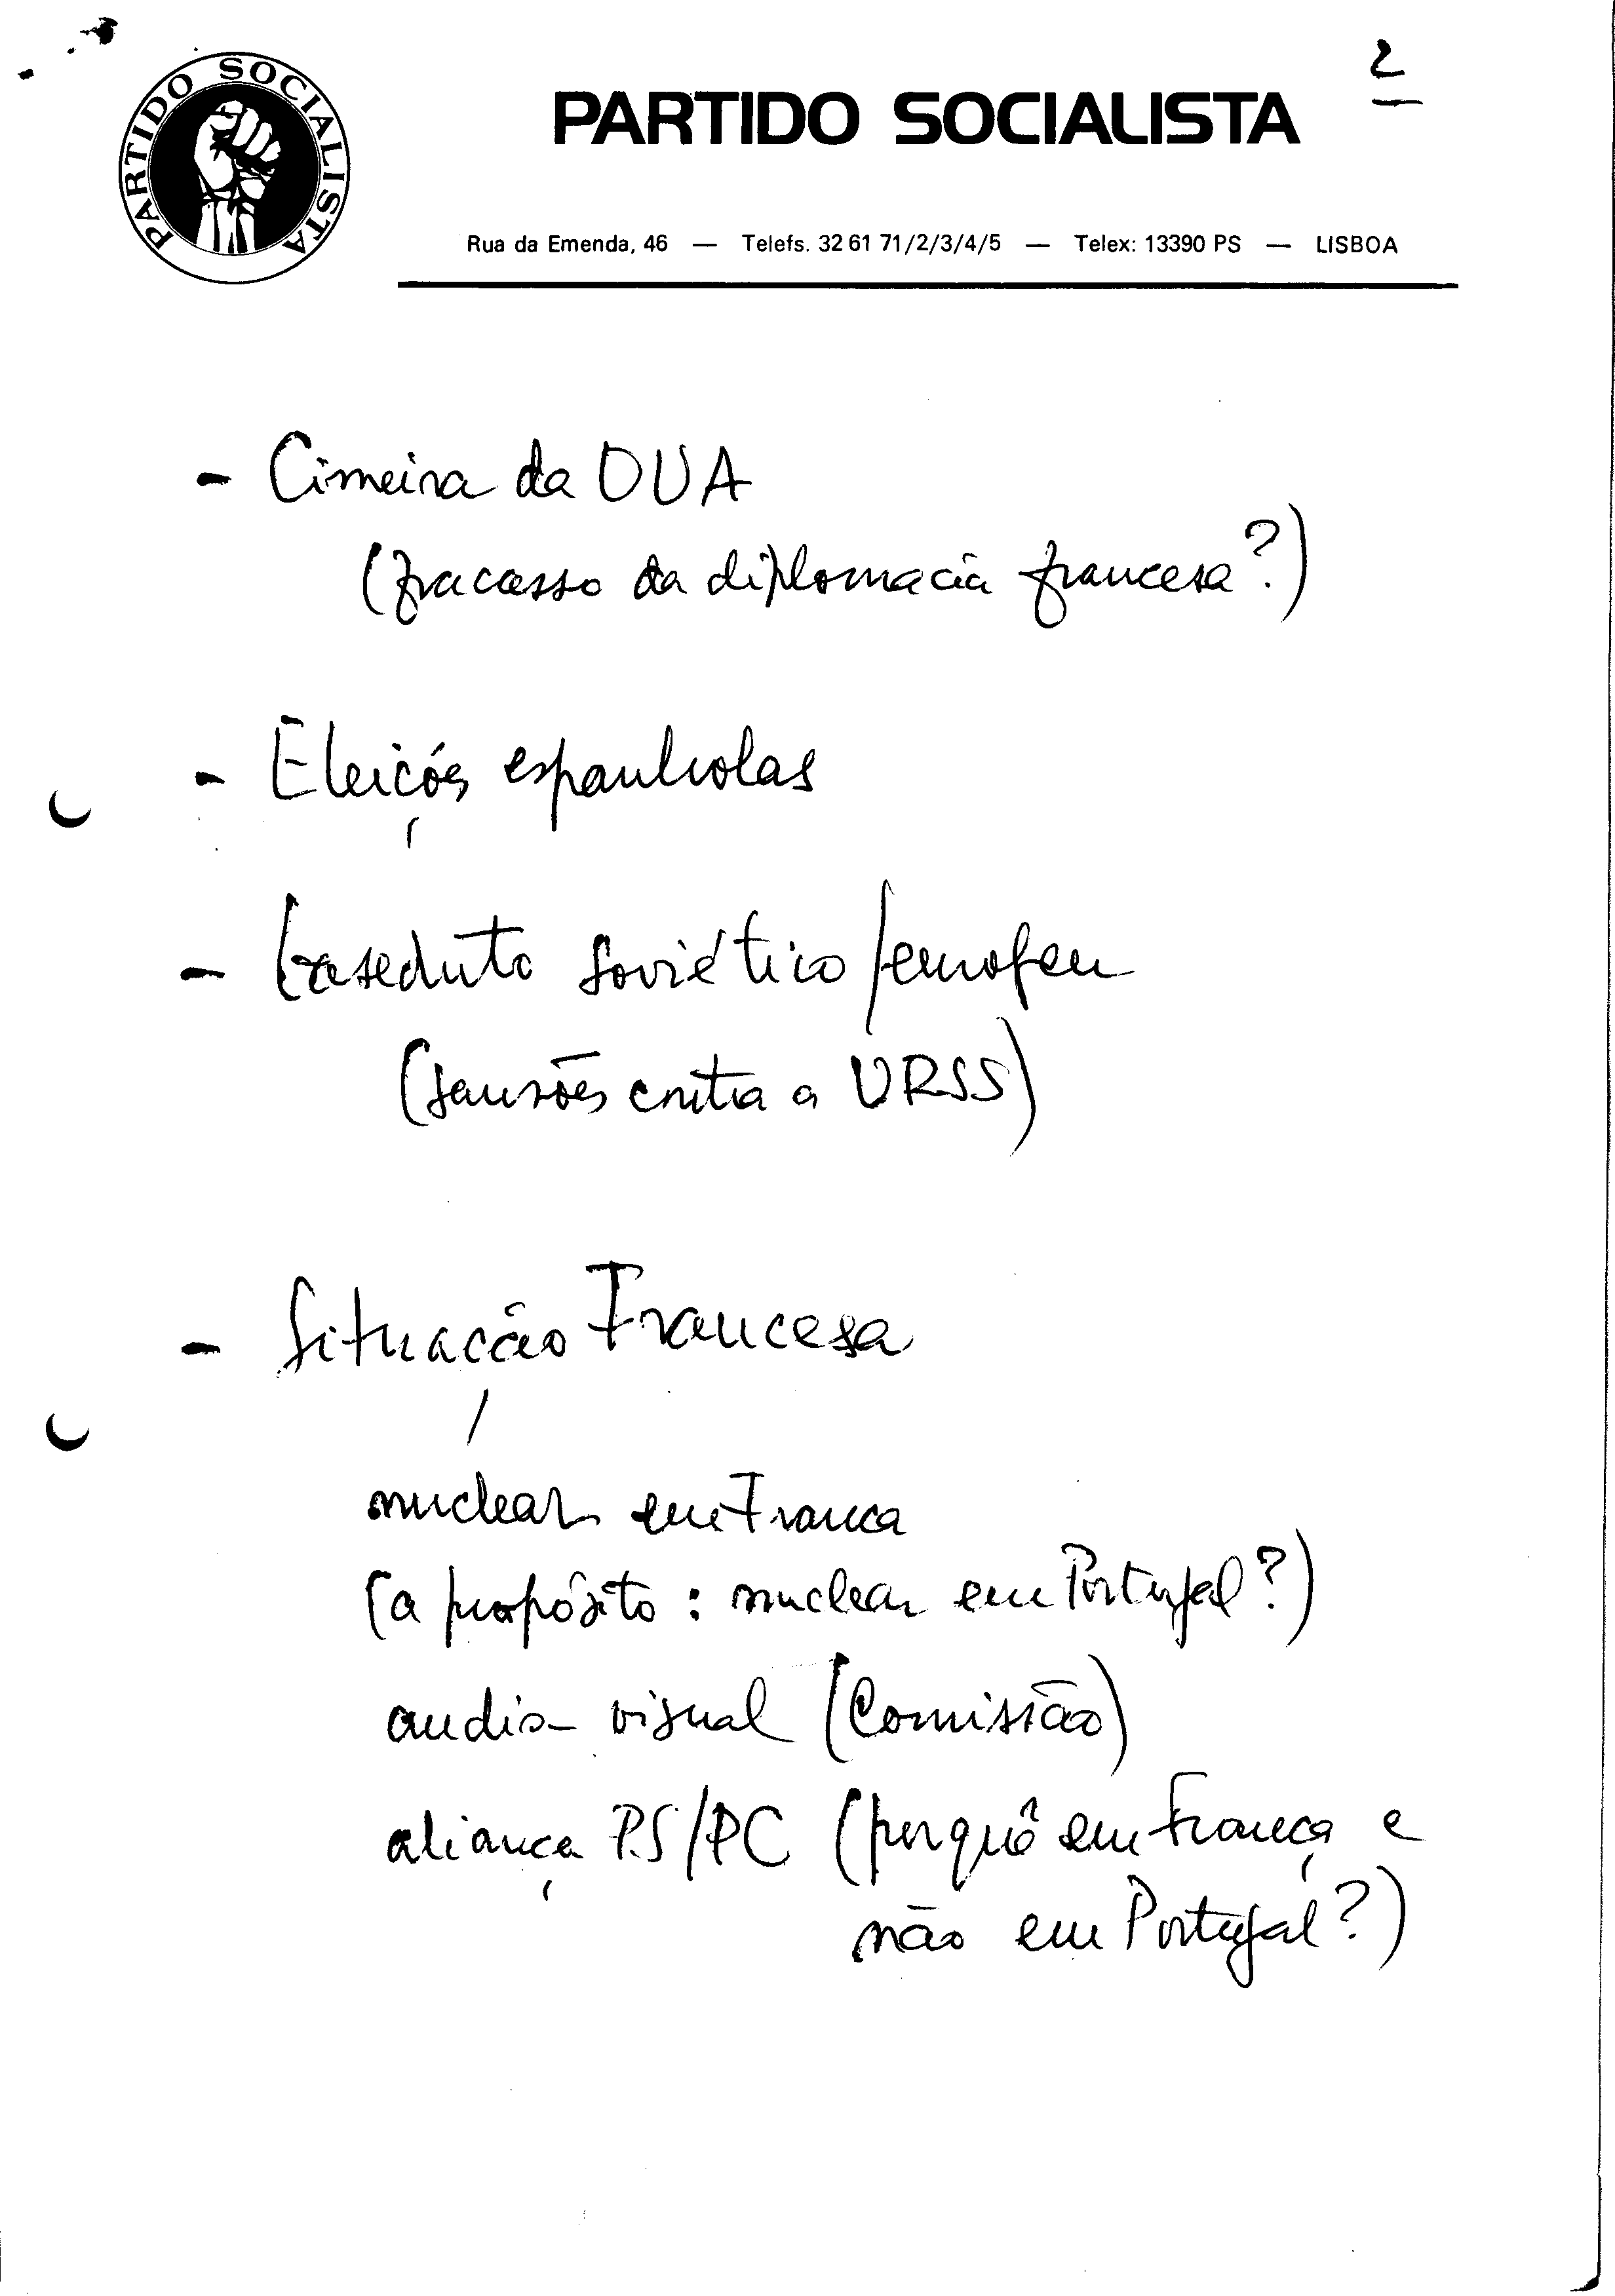 2
PARTIDO SOCIALISTA
PARTIDO SOCIALISTA
Rua da Emenda, 46 — Telefs. 32 61 71/2/3/4/5 — Telex: 13390 PS — LISBOA
- Cimeira da OUA
(fracasso da diplomacia francesa?)
- Eleições espanholas
- Gaseduto soviético/europeu
(sansões contra a URSS)
- Situação Francesa
nuclear em França
(a propósito: nuclear em Portugal?)
audio-visual (Comissão)
aliança PS/PC (porquê em França e
não em Portugal?)